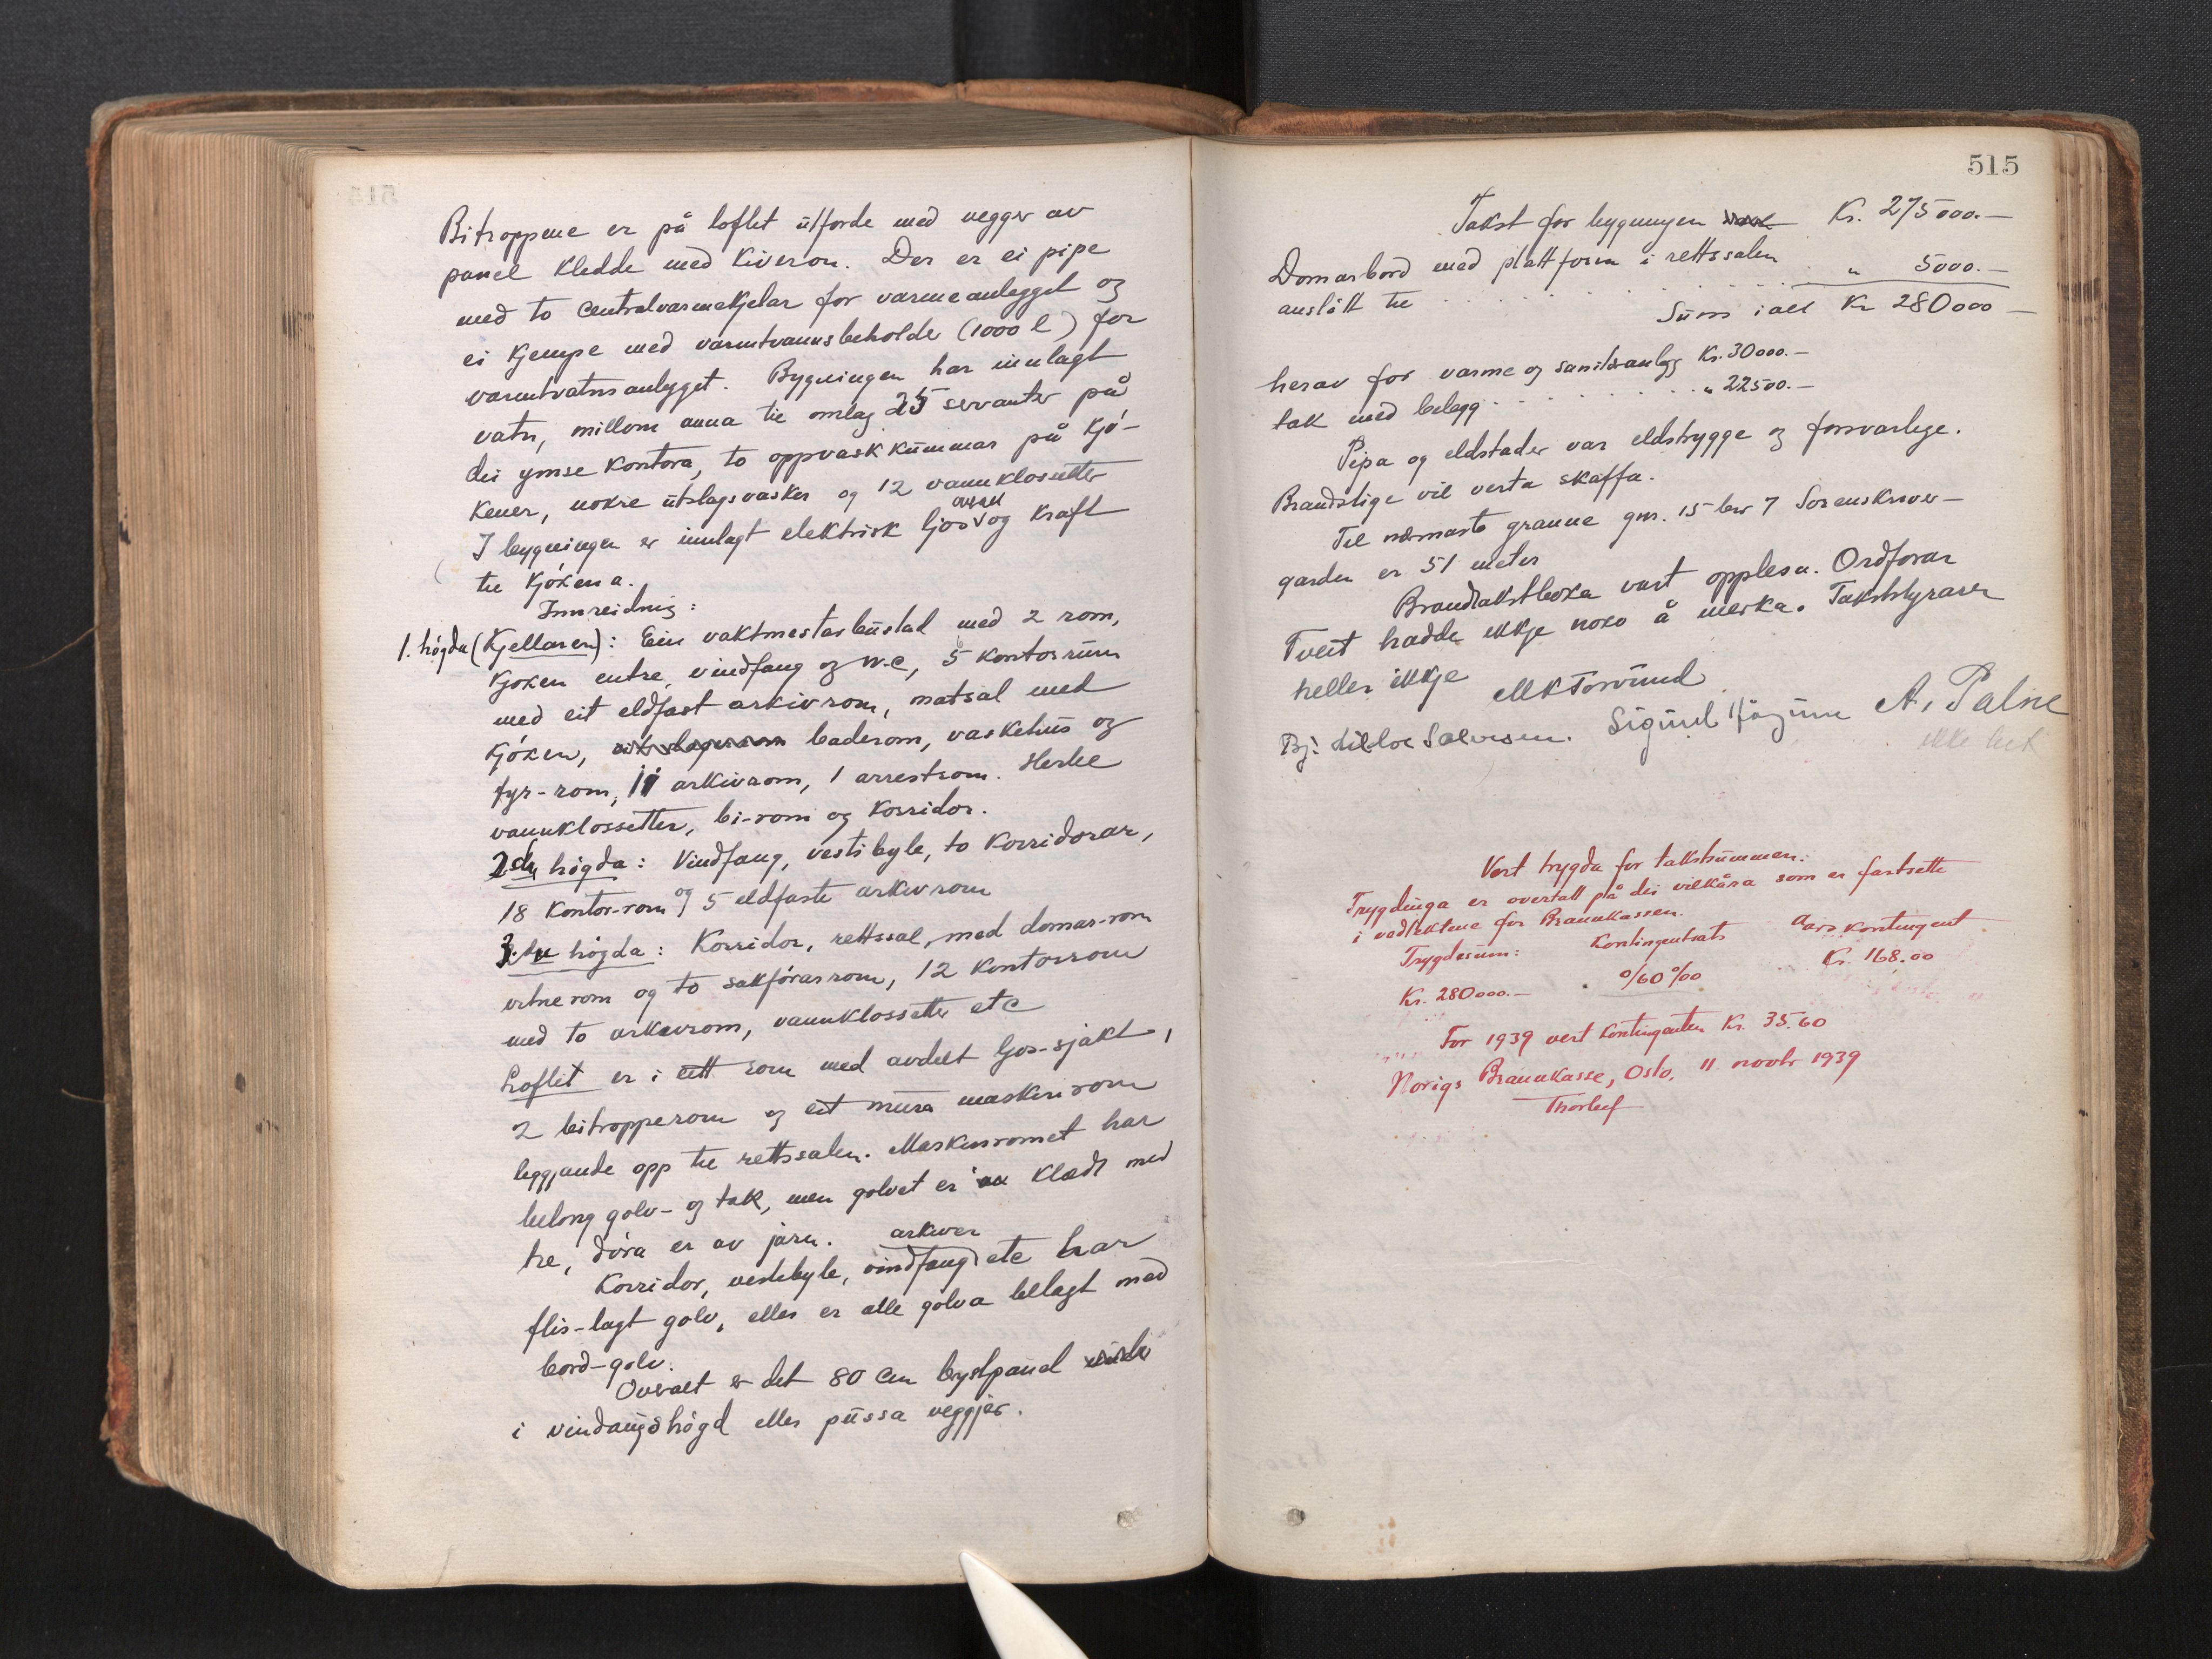 Bitroppene er på loftet utforde med vegger av
panel kledde med Kiveron. Der er ei pipe
med to centralvarmekjelar for varmeanlegget og
ei kjempe med varmtvannsbeholder (1000 l) for
varmtvatnsanlegget. Bygningen har innlagt
vatn, millom anna til omlag 25 servanter på
dei ymse kontora, to oppvaskkummar på kjø-
kener, nokre utslagsvasker og 12 vannklosetter
I bygningen er innlagt elektrisk ljos overalt og kraft
til kjøkena.
Innreidnig:
1. høgda (Kjellaren): Ein vaktmestarbustad med 2 rom,
kjøken entre, vindfang og w.c, 5 kontorrum
med eit eldfast arkivrom, matsal med
kjøken, baderom, vaskehus og
fyr-rom, 11 arkivrom, 1 arrestrom. Herbe
vannklossetter, bi-rom og korridor.
2dre høgda: Vindfang, vestibyle, to korridorar,
18 kontor-rom og 5 eldfaste arkivrom
3. høgda: Korridor, rettssal, med domar-rom
vitne rom og to sakførarrom, 12 kontorrom
med to arkivrom, vannklossetter etc
Loftet er i eitt rom med avdelt ljos-sjakt,
2 bitropperom og eit mura maskinrom
leggjande opp til rettssalen. Maskinromet har
betong golv- og tak, men golvet er klædt med
tre, døra er av jarn.
Korridor, vestibyle, vindfang arkiver etc har
flis-lagt golv, elles er alle golva bellagt med
bord-golv.
Overalt er det 80 cm brystpanel
i vindaugshøgd elles pussa veggjer.
515
Takst for bygningen Kr. 275000.—
Domarbord med plattform i rettssalen
anslått til . . . . . " 5000.—
Sum i alt Kr 280000—
herav for varme og sanitæranlegg Kr. 30000.—
tak med belegg . . . . . . . " 22500.—
Pipa og eldstader var eldstrygge og forsvarlege.
Brandstige vil verta skaffa.
Til nærmaste granne gnr. 15 bnr 7 Sorenskriver-
garden er 51 meter
Brandtakstboka vart opplesn. Ordførar
Tveit hadde ikkje noko å merka. Takststyraren
heller ikkje
A. Palne
Vert trygda for takstsummen:
Trygdinga er overtatt på dei vilkåra som er fastsette
i vedtektene for Brannkassen.
Trygdesum: Kontingentsats Aars kontingent
Kr. 280000.— 0/60 ‰ Kr. 168.00
For 1939 vert kontingenten Kr. 35.60
Norigs Brannkasse, Oslo, 11. novbr 1939